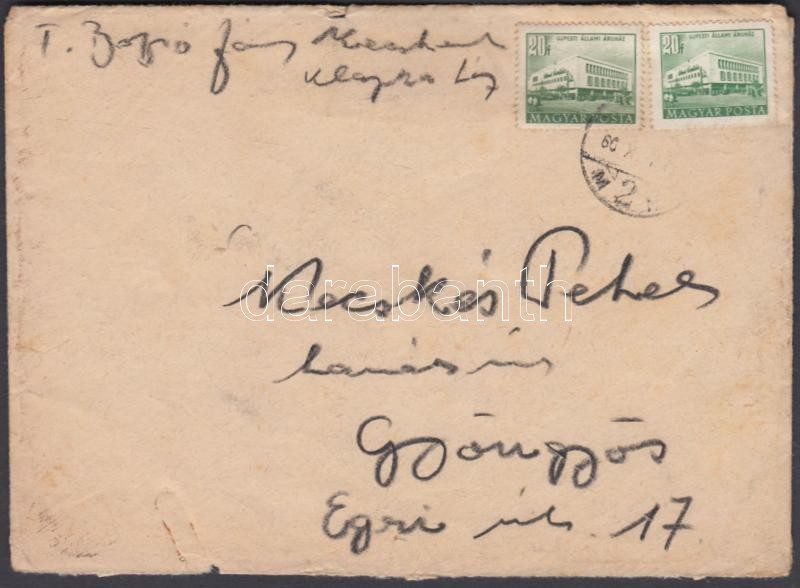 T. Bozsó János Kecskemét
Klapka
20f
ÚJPESTI ÁLLAMI ÁRUHÁZ
MAGYAR POSTA
20f
ÚJPESTI ÁLLAMI ÁRUHÁZ
MAGYAR POSTA
60 X
darabanth
Kecskés Péter
tanár úr
Gyöngyös
Egri út. 17.